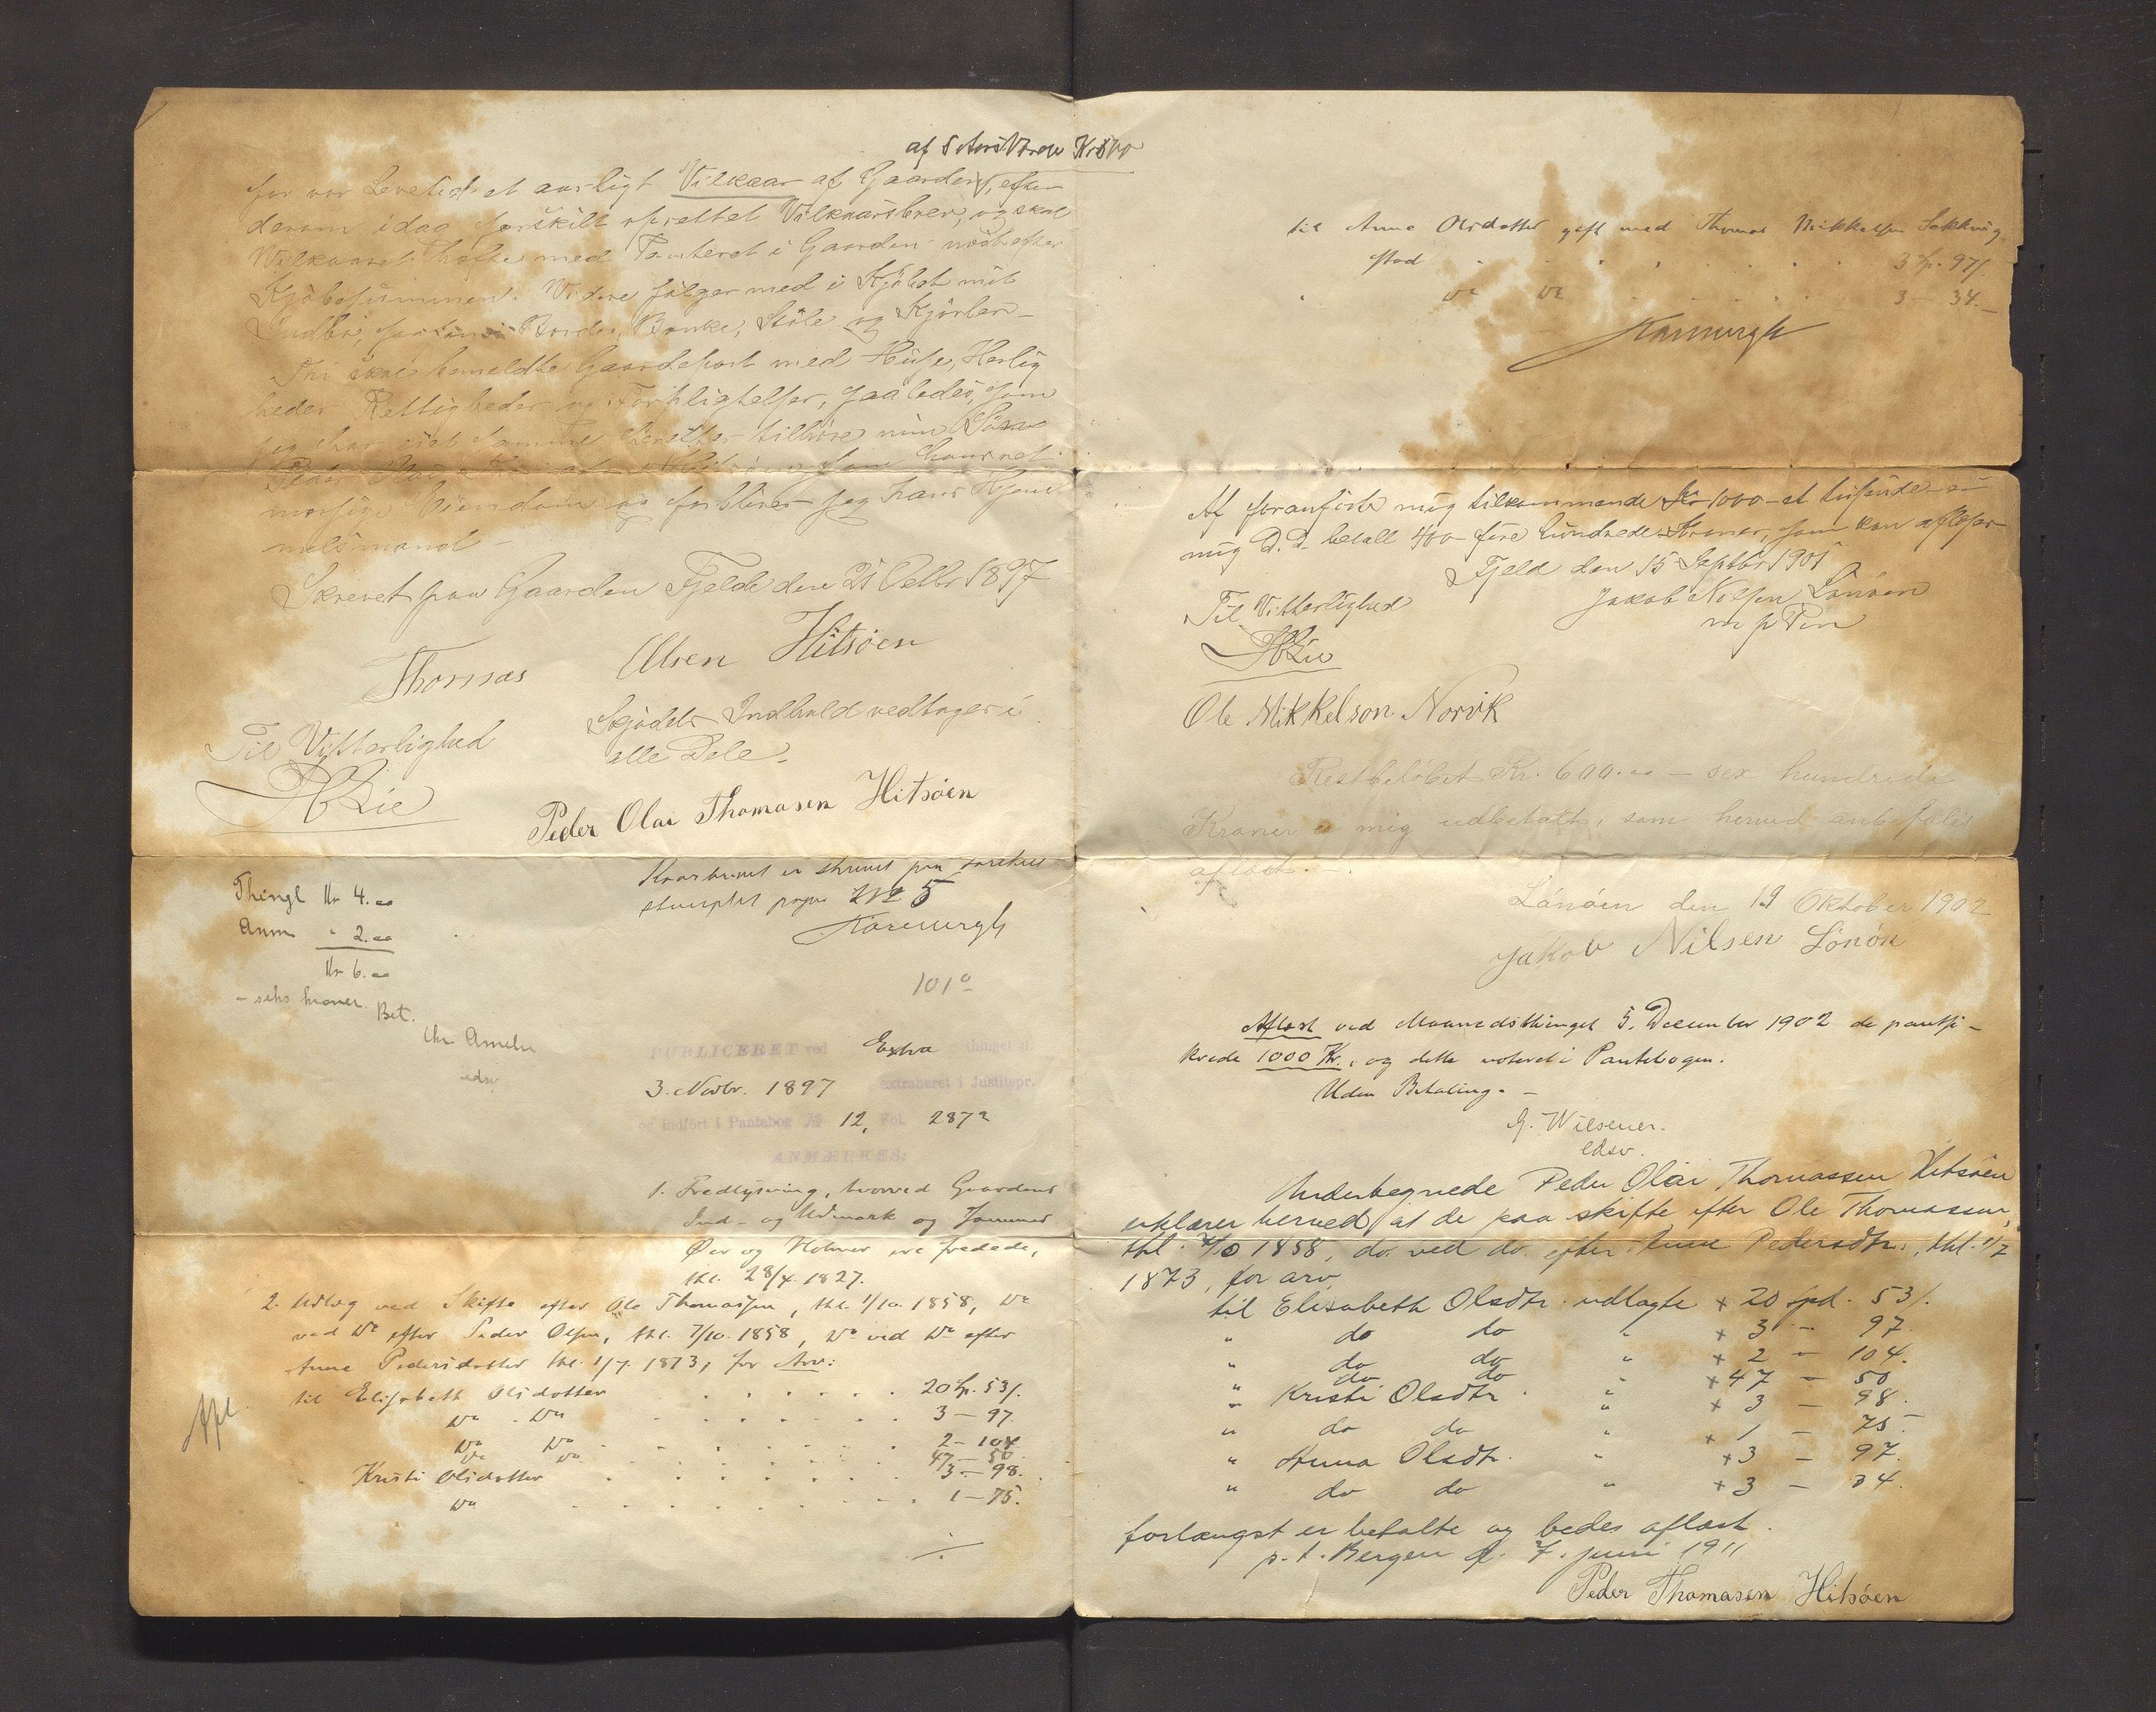 af 5 Aars Værdi Kr 500
for vor Levetid et aarligt Vilkaar af Gaarden, efter
derom idag særskilt oprettet Vilkaarsbrev, og skal
Vilkaaret hefte med Panteret i Gaarden næst efter
Kjøbesummen. Videre følger med i Kjøbet mit
Indbo, saasom Borde, Bænke, Stole og Kjørler
Thi skal bemeldte Gaardepart med Huse, Herlig
heder, Rettigheder og Forpligtelser, saaledes, som
jeg har eiet samme herefter tilhøre min Søn
Peder Olai Hitsøen, som hans ret
mæssige Eiendom og forbliver jeg hans Hjem
melsmand
Skrevet paa Gaarden Fjelde den 21 Octbr 1897
Thomas Olsen Hitsøen
Til Vitterlighed
HLie
Skjødets Indhold vedtages i
alle Dele.
Peder Olai Thomasen Hitsøen
Kaarbrevet er skrevet paa
stemplet papir No 5
Thingl Kr 4.00
Anm " 2.00
Kr 6.00
- seks kroner. Bet.
edsv
101 a
PUBLICERET ved Extra thinget d.
3. Novbr. 1897 extraheret i Justitspr.
og indført i Pantebog No 12, Fol. 287 a
ANMÆRKES:
1. Fredlysning, hvorved Gaardens
Ind- og Udmark og
Øer og Holmer ere fredede,
thl. 28/4 1827.
2. Udlæg ved Skifte efter Ole Thomassen, thl. 1/10. 1858, Do
ved Do efter Peder Olsen, thl. 7/10. 1858, Do ved Do efter
Anne Pedersdotter thl. 1/7. 1873, for Arv:
til Elisabeth Olsdotter . . . . . . 20 Sp. 53 s.
Do - Do . . . . . . . 3 - 97.
Do Do . . . . . . . 2 - 104
Do Do . . . . . . . 47 - 50.
Kristi Olsdotter . . . . . . . 3 - 98.
Do . . . . . . . . . 1 - 75.
Afl.
til Anna Olsdotter gift med Thomas Mikkelsen Sekking
stad . . . . . . . . 3 Sp. 97 s.
" Do Do . . . . . . 3 - 34.
Af foranførte mig tilkommende Kr 1000 - et tusinde er
mig D. D. betalt 400 fire hundrede Kroner, som kan afløses
Fjeld den 15 Septbr 1901
Jakob Nilsen Lønøen
m p Pen
Til Vitterlighed
HLie
Ole Mikkelson Norvik
Restbeløbet Kr. 600.00 - sex hundrede
Kroner er mig udbetalt, som herved anbefales
aflæst. -
Lønøen den 19 Oktober 1902
Jakob Nilsen Lønøn
Aflæst ved Maanedsthinget 5. December 1902 de pantsi-
krede 1000 Kr., og dette noteret i Pantebogen.
Uden Betaling. -
edsv.
Undertegnede Peder Olai Thomassen Hitsøen
erklærer herved at de paa skifte efter Ole Thomassen,
thl. 7/10 1858, do. ved do. efter Anne Pedersdtr., thl. 1/7
1873, for arv
til Elisabeth Olsdtr. udlagte + 20 spd. 53 s.
" do do " + 3 - 97.
" do do " + 2 - 104.
" do do + 47 - 50
" Kristi Olsdtr " + 3 - 98.
" do do " + 1 - 75.
" Anna Olsdtr. " + 3 - 97.
" do do " + 3 - 34.
forlængst er betalte og bedes aflæst.
p. t. Bergen d. 7. juni 1911
Peder Thomasen Hitsøen